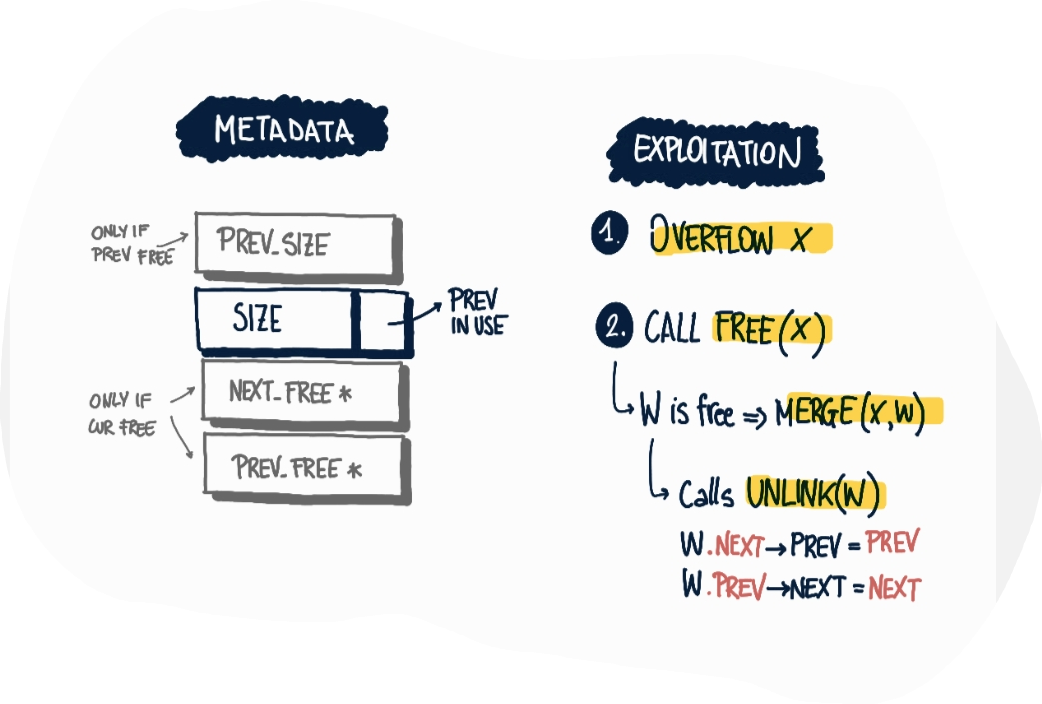 METADATA
ONLY IF
PREV FREE
PREV_SIZE
SIZE
PREV
IN USE
ONLY IF
CUR FREE
NEXT_FREE *
PREV_FREE *
EXPLOITATION
1. OVERFLOW X
2. CALL FREE(X)
W is free => MERGE(X,W)
Calls UNLINK(W)
W.NEXT→PREV = PREV
W.PREV→NEXT = NEXT